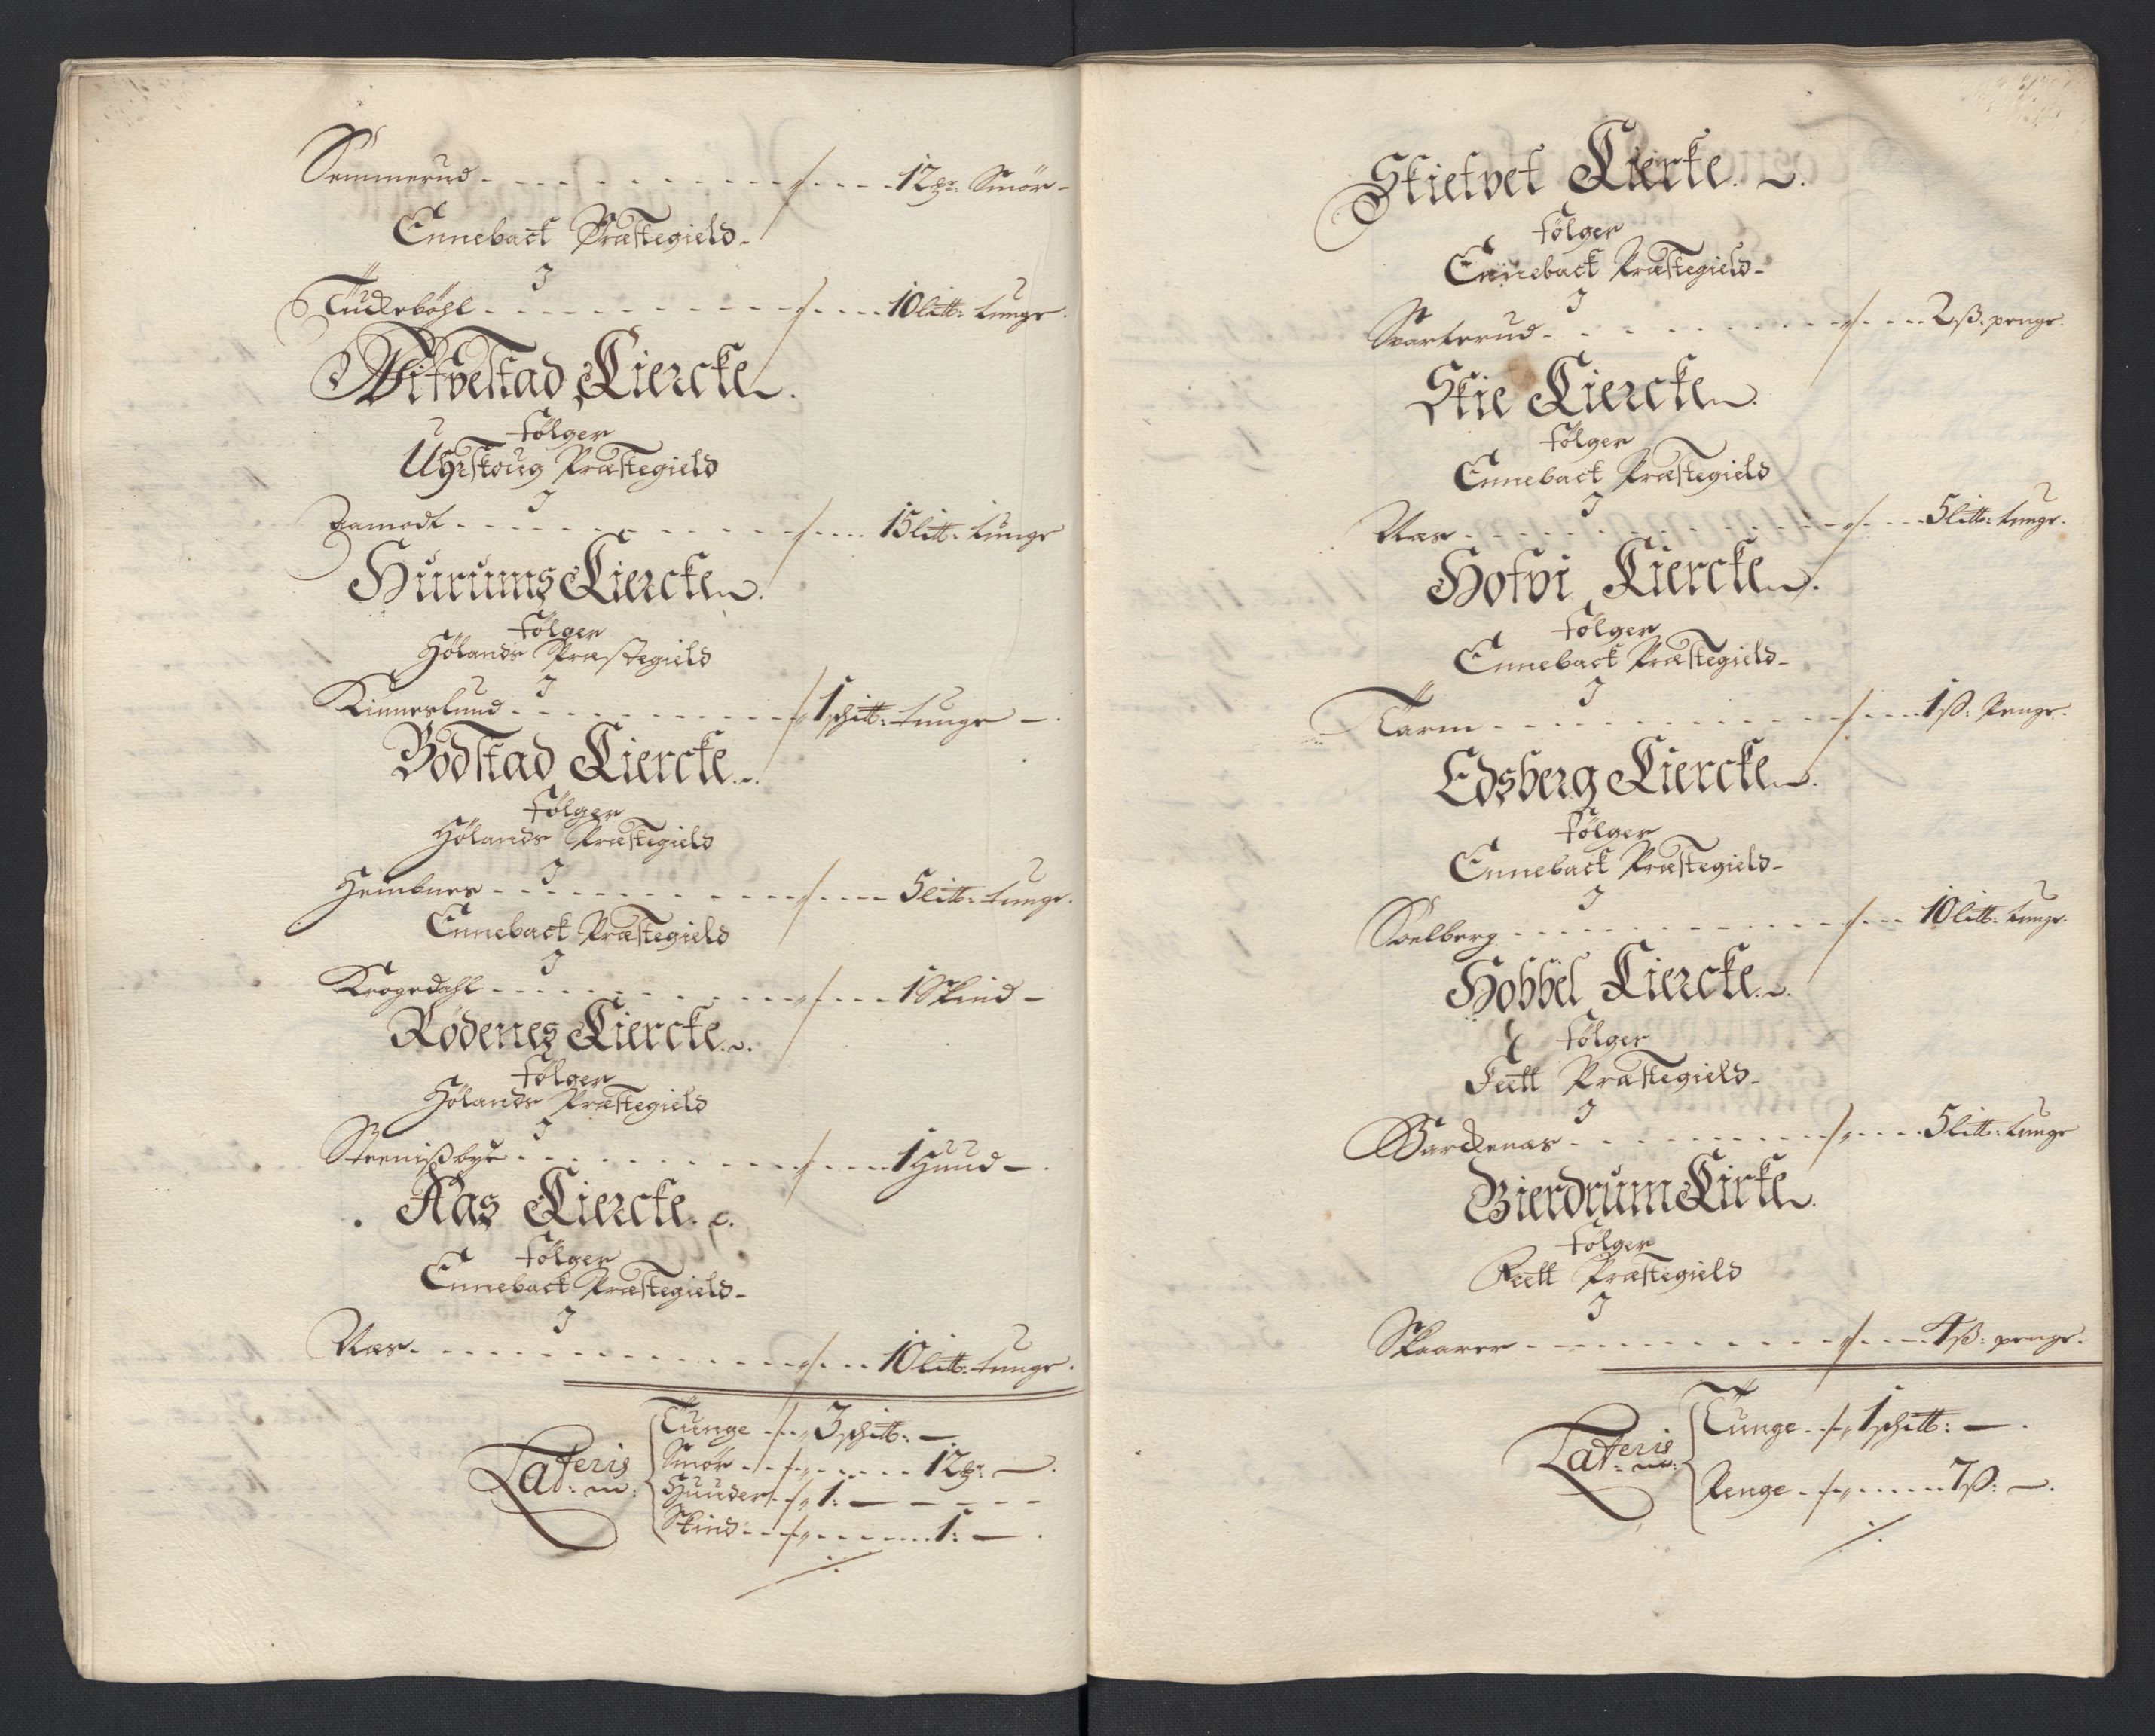 Semmerud - - - - 12 ℔: Smör -
Enneback Præstegield -
J
Tücherböhl - - - - 10 litt: tunge.
Witvestad Kiercke.
følger
Uhrskoug Præstegield
J
Aamodt - - - - 15 litt: tunge
Hurums Kiercke.
følger
Hölands Præstegield
J
Kinnerlund - - - - 1 schitt: tunge -
Bodstad Kiercke.
følger
Hölands Præstegield
J
Heimbner - - - - 5 litt: tunge.
Enneback Præstegield
J
Krogedahl - - - - 1 Skind -
Rödenes Kiercke.
følger
Hölands Præstegield
J
Steenißbye - - - - 1 Huud -
Aas Kiercke.
følger
Enneback Præstegield -
J
Næs - - - - 10 litt: tunge.
Lateris
Tunge - - 3 schitt: -
Smör - - - 12 ℔: -
Huuder - - 1: -
Skind - - - 1: -
Skietvet Kierke.
følger
Enneback Præstegield -
J
Svarterud - - - - 2 ß. penge.
Skie Kiercke.
følger
Enneback Præstegield
J
Næs - - - - 5 litt: tunge.
Hofvi Kiercke.
følger
Enneback Præstegield -
J
Tarm - - - - 1 ß: Penge.
Edsberg Kiercke.
følger
Enneback Præstegield -
J
Soelberg - - - - 10 litt: tunge.
Hobbel Kiercke.
følger
Feett Præstegield -
J
Garchenæs - - - - 5 litt: tunge
Bierdrum Kirke.
følger
Feett Præstegield
J
Skaarer - - - - 4 ß: penge.
Lateris
Tunge - - 1 schitt: -
Penge - - - 7 ß: -